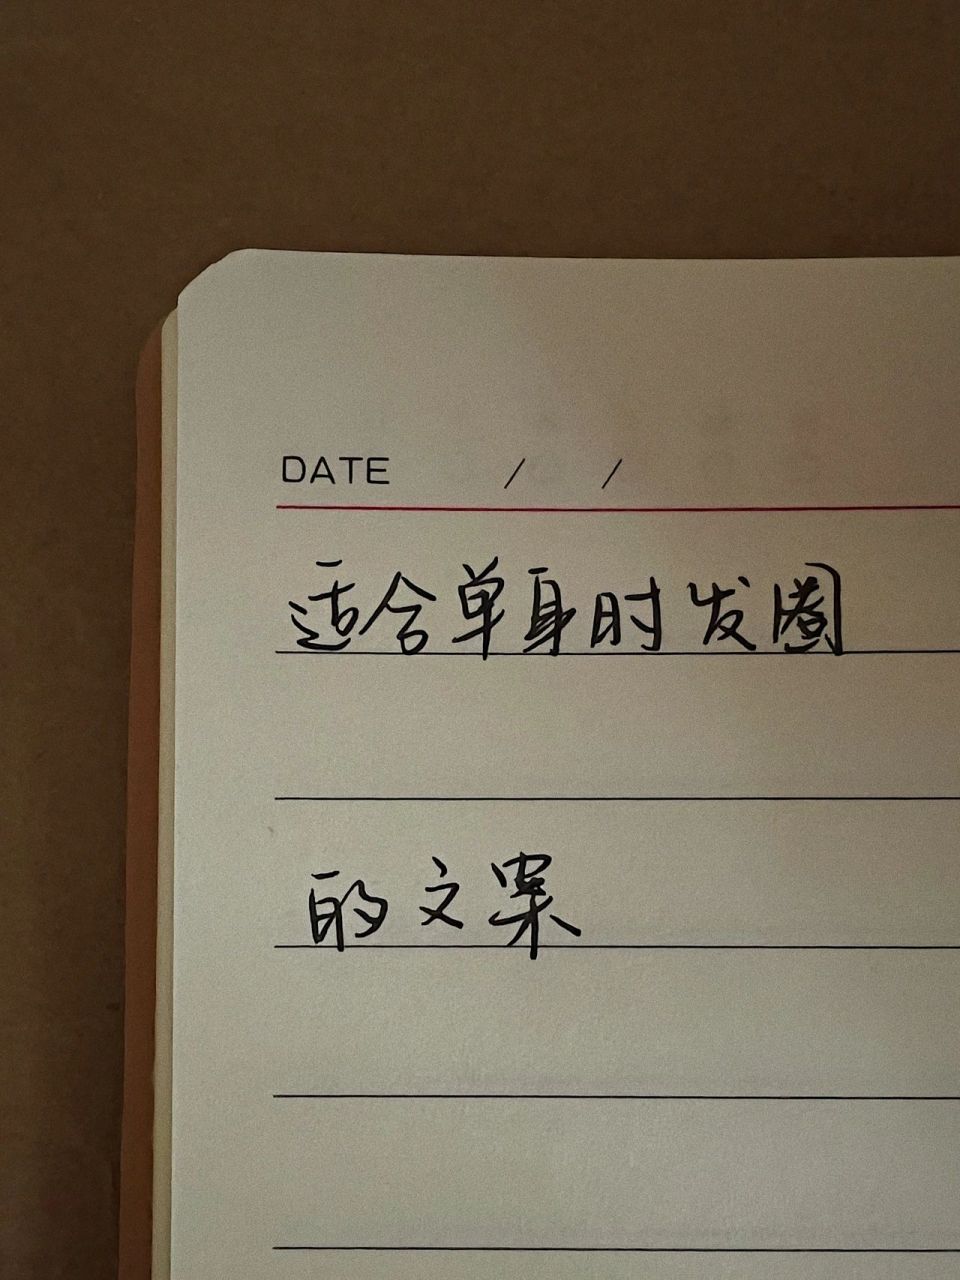 DATE / /
适合单身时发圈
的文案